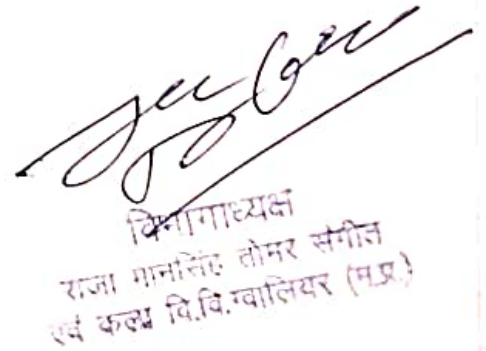 विभागाध्यक्ष
राजा मानसिंह तोमर संगीत
एवं कला वि.वि.ग्वालियर (म.प्र.)